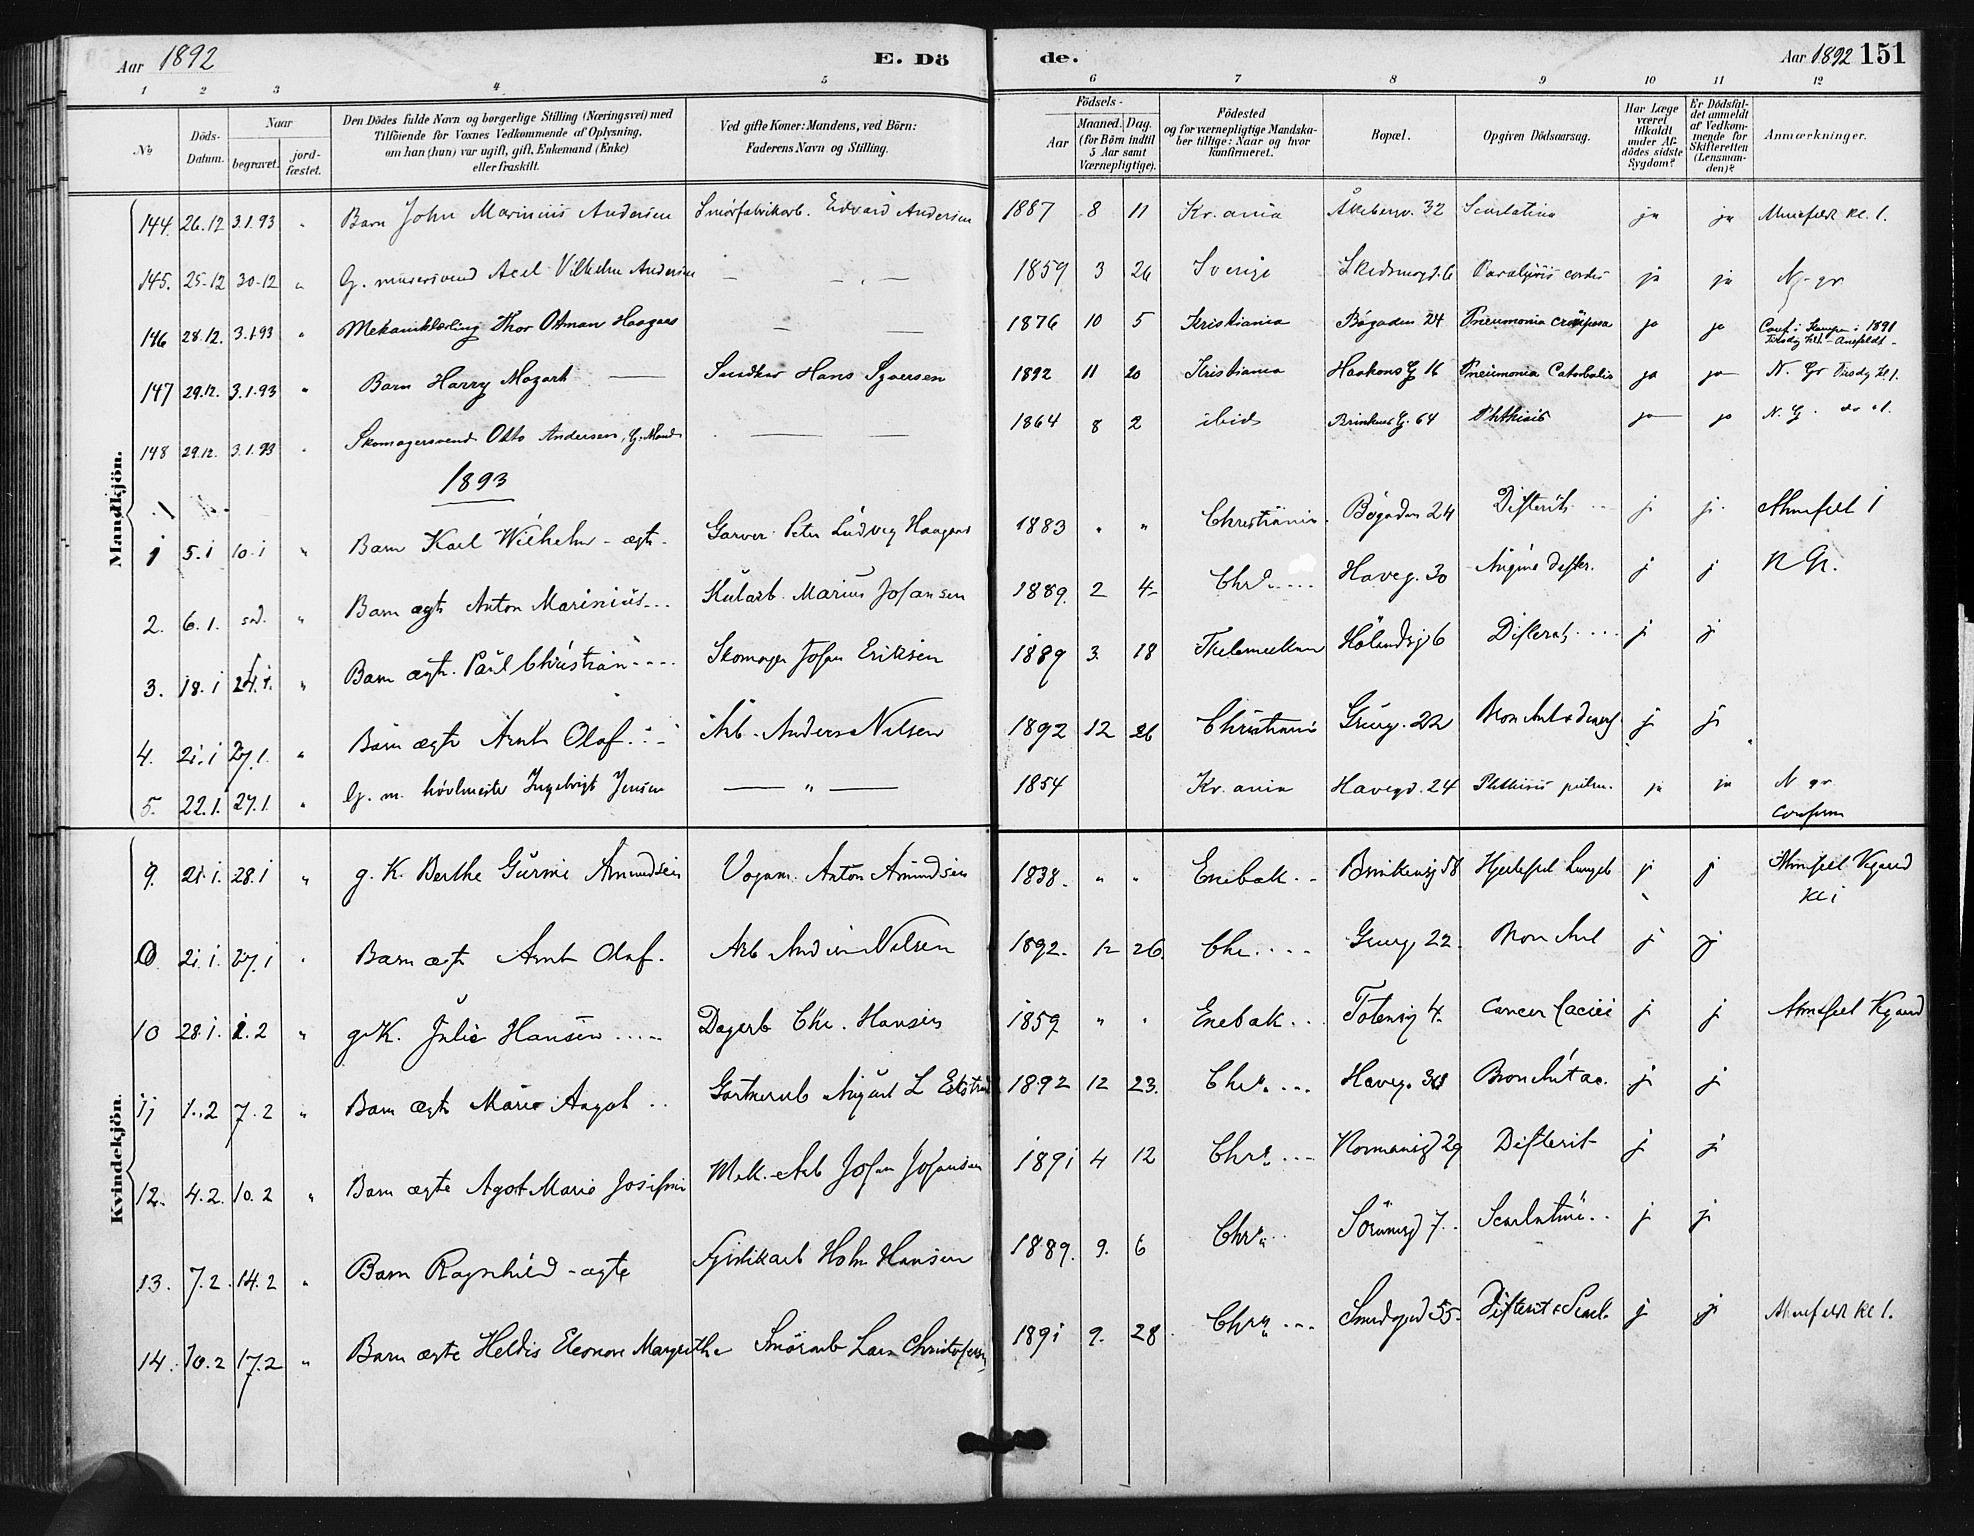 Aar 1892 E. Dö de. Aar 1892 151
1 2 3 4 5 6 7 8 9 10 11 12
No Döds-Datum. Naar begravet. jordfæstet. Den Dödes fulde Navn og borgerlige Stilling (Næringsvei) med Tilföiende for Voxnes Vedkommende af Oplysning, om han (hun) var ugift, gift, Enkemand (Enke) eller fraskilt. Ved gifte Koner: Mandens, ved Börn: Faderens Navn og Stilling. Födsels- Aar Maaned. Dag. (for Börn indtil 5 Aar samt Værnepligtige). Födested og for værnepligtige Mandskaber tillige: Naar og hvor konfirmeret. Bopæl. Opgiven Dödsaarsag. Har Læge været tilkaldt under Afdödes sidste Sygdom? Er Dödsfaldet anmeldt af Vedkommende for Skifteretten (Lensmanden)? Anmærkninger.
Mandkjön.
144. 26.12 3.1.93 " Barn John Marinius Andersen Smörfabrikarb. Edvard Andersen 1887 8 11 Kr.ania Åkebergv. 32 Scarlatina ja ja Ahnefeldt kl. 1.
145. 25-12 30-12 " G. murersvend Axel Vilhelm Andersen — " — 1859 3 26 Sverige Skedsmogd. 6 Paralysis cordis ja ja N. gr
146 28.12. 3.1.93 " Mekaniklærling Thor Otman Haagaas — — 1876 10 5 Kristiania Bögaden 24 Pneumonia crouposa ja ja Conf. i Kampen i 1891
147 29.12. 3.1.93 " Barn Harry Mozart — Hans Syversen 1892 11 20 Kristiania Haakons G 16 Pneumonia Catarhalis ja ja N. Gr Tirsdg kl. 1.
148 29.12. 3.1.93 " Skomagersvend Otto Andersen, G. Mand — — 1864 8 2 ibid Brinkens G. 64 Phthisis ja ja N. G. do 1.
1893
1 5.1 10.1 " Barn Karl Wilhelm - ægte - Garver Peter Ludvig Haagens 1883 " " Christiania. Bögaden 24 Difterit j j. Ahnefelt 1
2. 6.1. sd. " Barn ægte Anton Marinius Kularb. Marius Johansen 1889. 2 4 Chra Haveg. 30 Angina difter. j j N Gr.
3. 18.1 24.1. " Barn ægte. Paul Christian Skomager Johan Eriksen 1889 3. 18 Hölandsg 6 Difterit j j
4. 21.1 27.1. " Barn ægte Arnt Olaf. Arb. Anders Nilsen 1892 12 26 Christiania Grueg. 22 j j
5. 22.1. 27.1. " G. m. hövlmester Ingebrigt Jensen — " — 1854 Kr.ania Havegd. 24 Phthisis pulm. ja ja N gr
Kvindekjön.
9. 21.1. 28.1 " g. K. Berthe Gurine Amundsen Vognm. Anton Amundsen 1838. " " Enebak Brinkensg 58 j j Ahnefelt
Kl 1
21.1. 27.1 " Barn ægte Arnt Olaf. Arb Anders Nilsen 1892. 12 26. Chr. Grueg. 22. Bronchit j j
10 28.1. 1.2 " g. K. Julie Hansen Dagarb Chr. Hansen 1859 " " Enebak Totensg 4. Cancer j j Ahnefelt
11 1.2 7.2 " Barn ægte Marie Aagot August L 1892 12 23. Chra Haveg. Bronchit ac. j j
12. 4.2. 10.2 " Barn ægte Agot Marie Josefine Mek. Arb Johan Johansen 1891 4 12 Chra Normansgd 29 Difterit j j
13. 7.2. 14.2 " Barn Ragnhild - ægte Hansen 1889. 9. 6 Chra 7. Scarlatina j j
14. 10.2 17.2 " Barn ægte Heldis Eleonore Margrethe Smörarb Lars Christofersen 1891 9. 28 Chra Smedgad 55. Difterit & Scarl. j j Ahnefeldt kl 1.